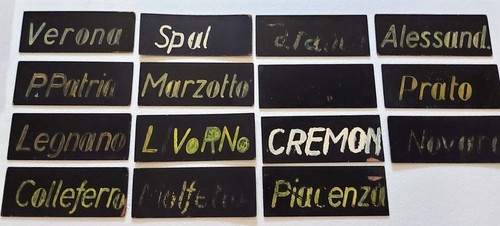 Verona Spal Alessand.
P.Patria Marzotto Prato
Legnano LIVoRNo CREMON Novara
Colleferro Molfetta Piacenza